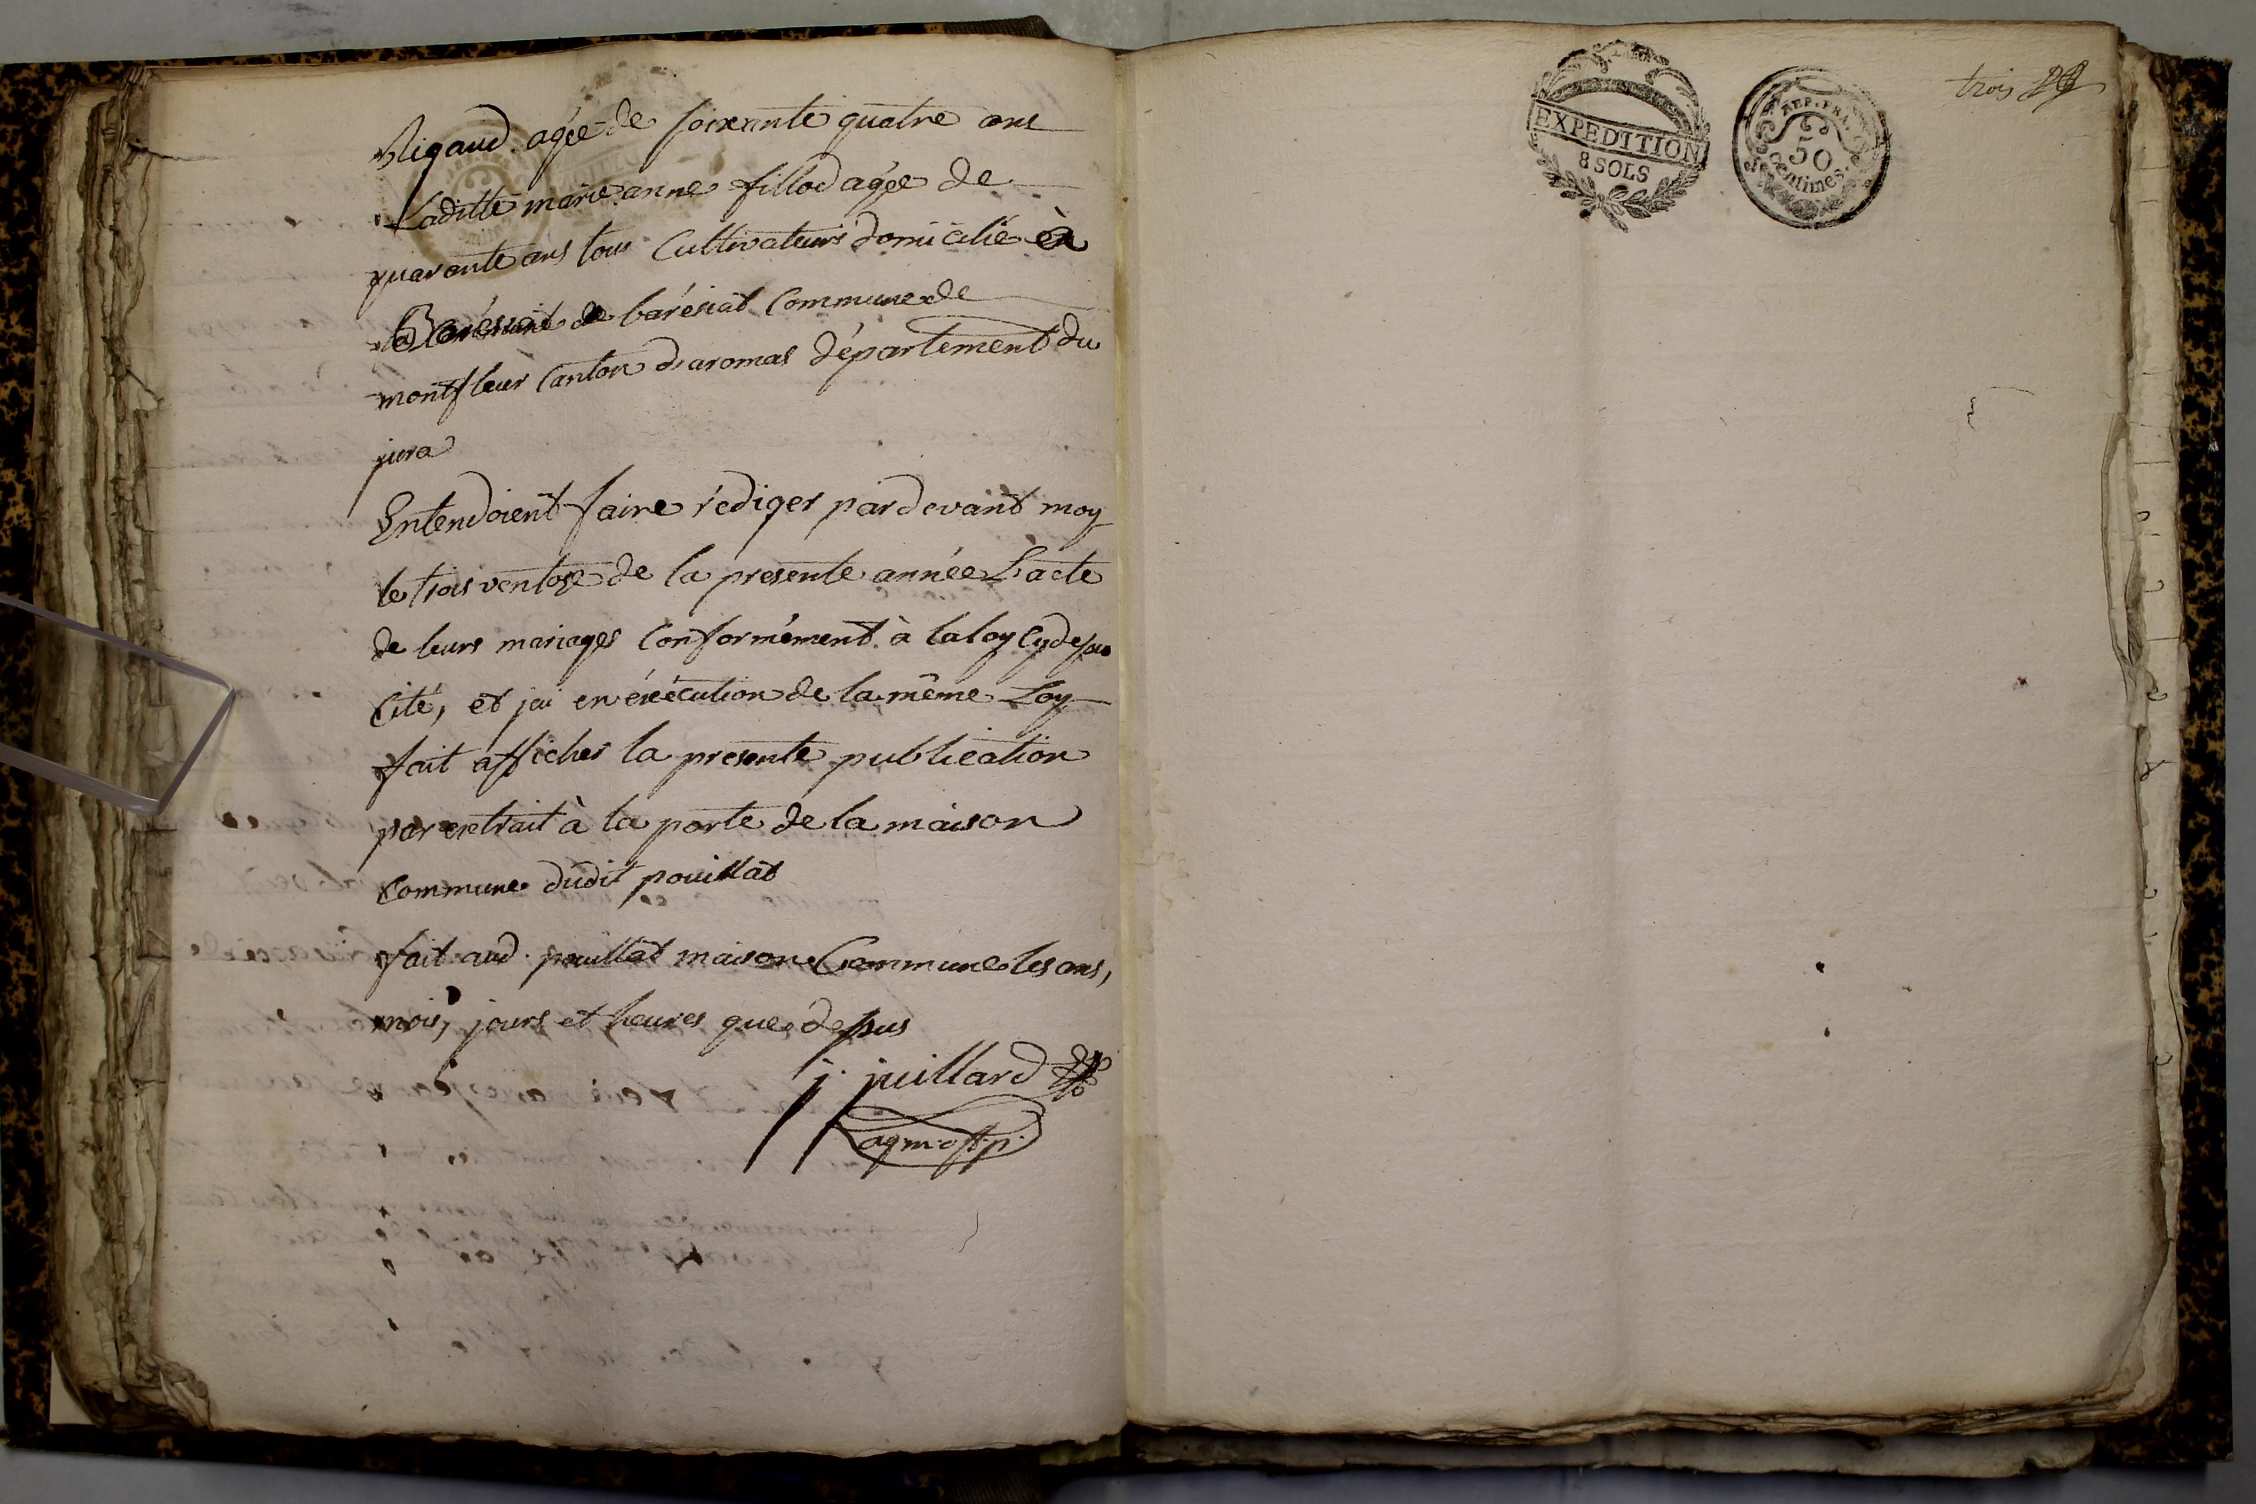 Rigaud agée de soixante quatre ans
Laditte marie anne fillod agée de
quarante ans tous Cultivateurs domicilié à
de barésiat Commune de
montfleur Canton d'aromas département du
jura
Entendoient faire rédiger pardevant moy
le trois ventose de la presente année L'acte
de leurs mariages Conformément à la loy Cydessus
Cité, et jai en éxécution de la même Loy
fait afficher la presente publication
par extrait à la porte de la maison
Commune dudit pouillat
fait aud. pouillat maison Commune les ans,
mois, jours et heures que dessus
j. juillard
agm. off. p.
EXPEDITION
8 SOLS
REP. FRA.
50
Centimes.
trois